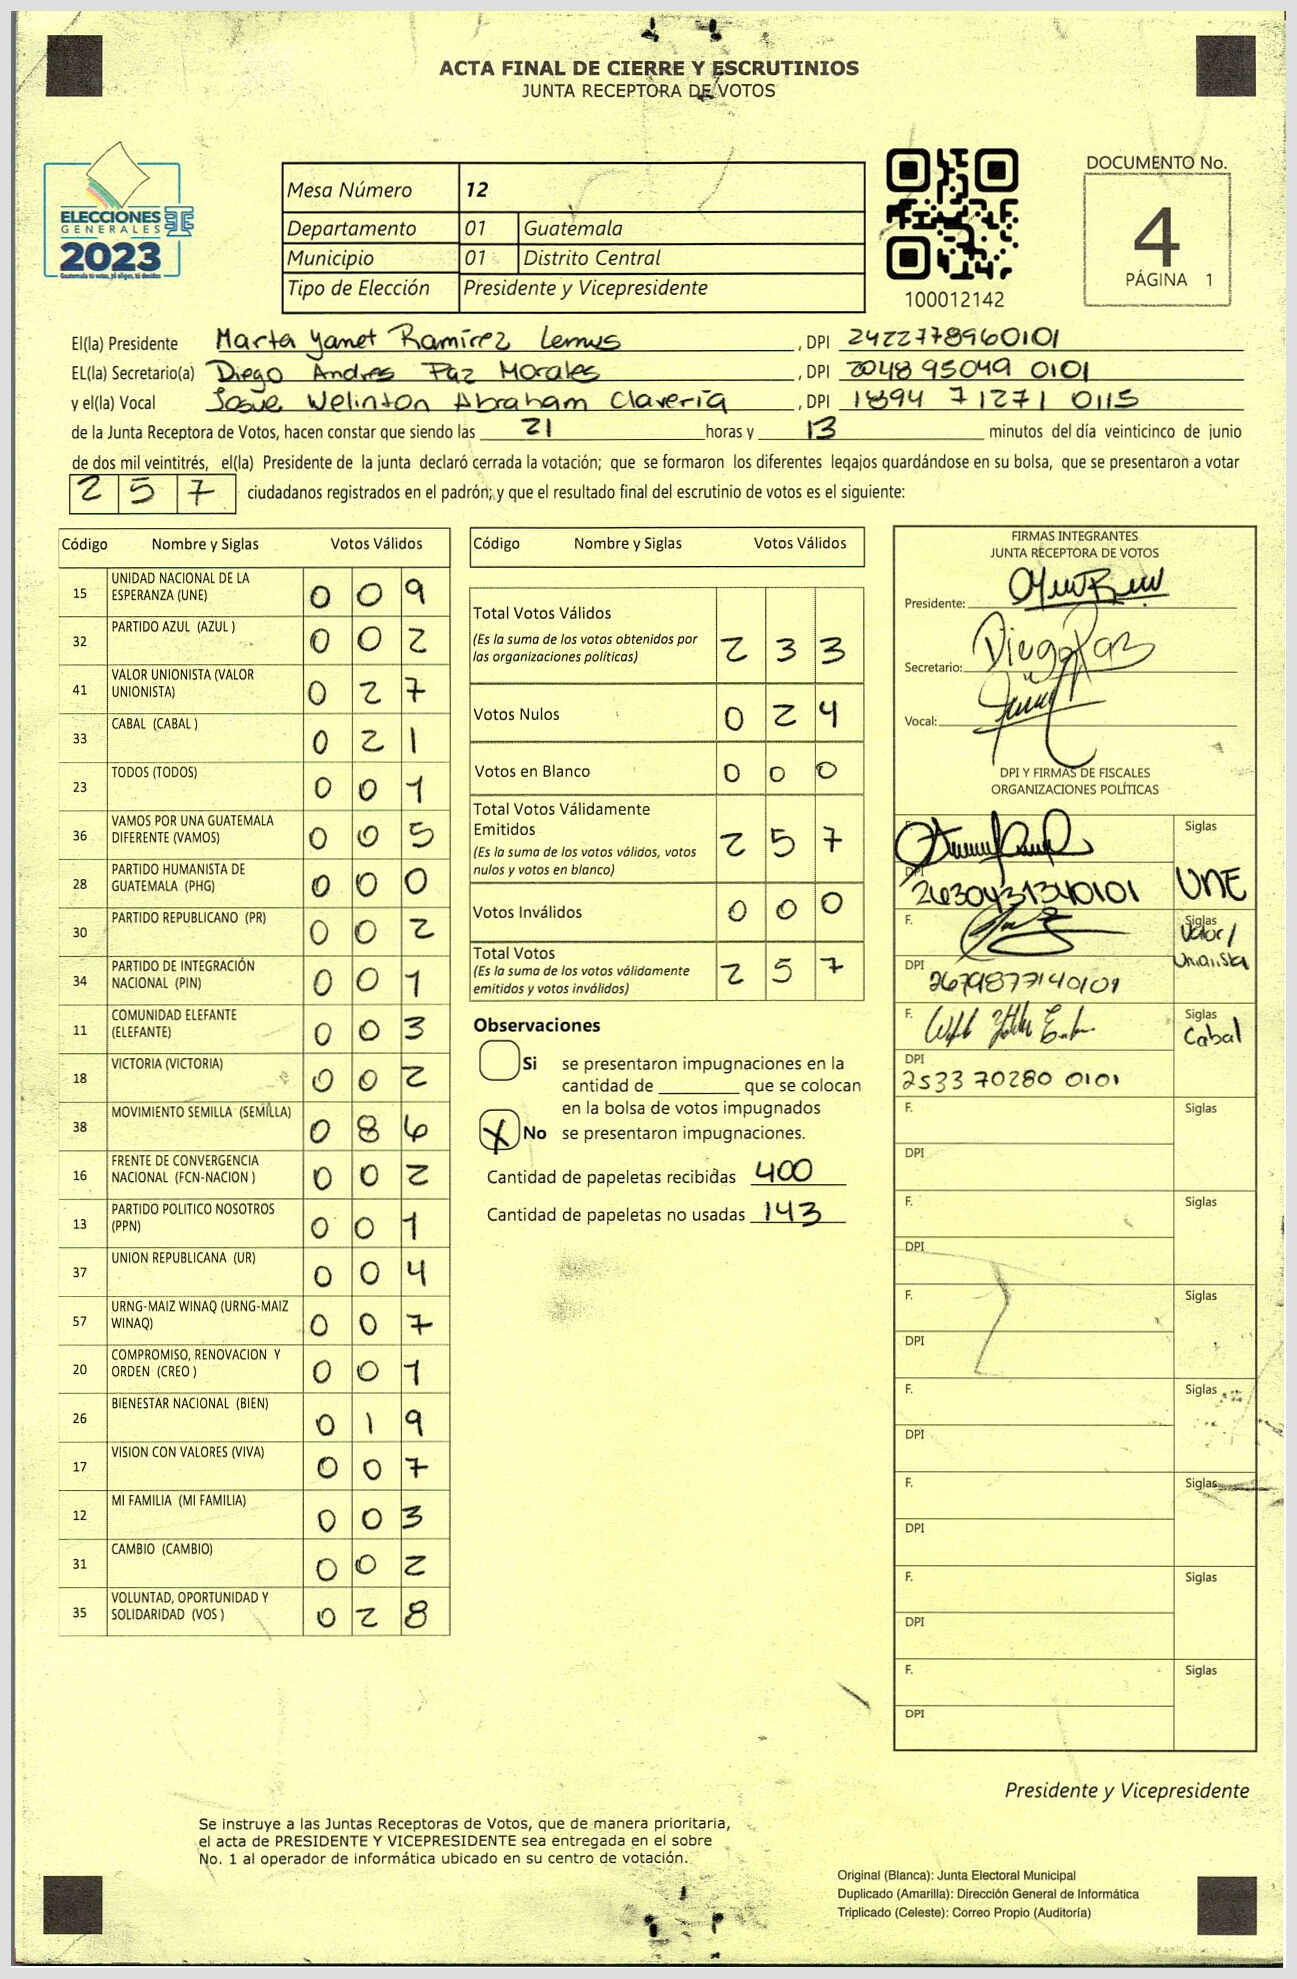 ACTA FINAL DE CIERRE Y ESCRUTINIOS
JUNTA RECEPTORA DE VOTOS
ELECCIONES
GENERALES
2023
Guatemala tú votas, tú eliges, tú decides
Mesa Número 12
Departamento 01 Guatemala
Municipio 01 Distrito Central
Tipo de Elección Presidente y Vicepresidente
100012142
DOCUMENTO No.
4
PÁGINA 1
El(la) Presidente Marta Yanet Ramírez Lemus, DPI 2422778960101
EL(la) Secretario(a) Diego Andres Paz Morales, DPI 2048 95049 0101
y el(la) Vocal Josue Welinton Abraham Clavería, DPI 1894 71271 0115
de la Junta Receptora de Votos, hacen constar que siendo las 21 horas y 13 minutos del día veinticinco de junio
de dos mil veintitrés, el(la) Presidente de la junta declaró cerrada la votación; que se formaron los diferentes legajos guardándose en su bolsa, que se presentaron a votar
257 ciudadanos registrados en el padrón; y que el resultado final del escrutinio de votos es el siguiente:
Código Nombre y Siglas Votos Válidos
15 UNIDAD NACIONAL DE LA ESPERANZA (UNE) 009
32 PARTIDO AZUL (AZUL ) 002
41 VALOR UNIONISTA (VALOR UNIONISTA) 027
33 CABAL (CABAL ) 021
23 TODOS (TODOS) 001
36 VAMOS POR UNA GUATEMALA DIFERENTE (VAMOS) 005
28 PARTIDO HUMANISTA DE GUATEMALA (PHG) 000
30 PARTIDO REPUBLICANO (PR) 002
34 PARTIDO DE INTEGRACIÓN NACIONAL (PIN) 001
11 COMUNIDAD ELEFANTE (ELEFANTE) 003
18 VICTORIA (VICTORIA) 002
38 MOVIMIENTO SEMILLA (SEMILLA) 086
16 FRENTE DE CONVERGENCIA NACIONAL (FCN-NACION ) 002
13 PARTIDO POLITICO NOSOTROS (PPN) 001
37 UNION REPUBLICANA (UR) 004
57 URNG-MAIZ WINAQ (URNG-MAIZ WINAQ) 007
20 COMPROMISO, RENOVACION Y ORDEN (CREO ) 001
26 BIENESTAR NACIONAL (BIEN) 019
17 VISION CON VALORES (VIVA) 007
12 MI FAMILIA (MI FAMILIA) 003
31 CAMBIO (CAMBIO) 002
35 VOLUNTAD, OPORTUNIDAD Y SOLIDARIDAD (VOS ) 028
Código Nombre y Siglas Votos Válidos
Total Votos Válidos
(Es la suma de los votos obtenidos por
las organizaciones políticas) 233
Votos Nulos 024
Votos en Blanco 000
Total Votos Válidamente
Emitidos
(Es la suma de los votos válidos, votos
nulos y votos en blanco) 257
Votos Inválidos 000
Total Votos
(Es la suma de los votos válidamente
emitidos y votos inválidos) 257
Observaciones
Si se presentaron impugnaciones en la
cantidad de ________ que se colocan
en la bolsa de votos impugnados
X No se presentaron impugnaciones.
Cantidad de papeletas recibidas 400
Cantidad de papeletas no usadas 143
FIRMAS INTEGRANTES
JUNTA RECEPTORA DE VOTOS
Presidente:
Secretario: Diego Paz
Vocal:
DPI Y FIRMAS DE FISCALES
ORGANIZACIONES POLÍTICAS
F. Siglas
DPI 2630431340101 UNE
F. Siglas
Valor/
Unionista
DPI 2679877140101
F. Siglas
Cabal
DPI
2533 70280 0101
F. Siglas
DPI
F. Siglas
DPI
F. Siglas
DPI
F. Siglas
DPI
F. Siglas
DPI
F. Siglas
DPI
F. Siglas
DPI
Presidente y Vicepresidente
Se instruye a las Juntas Receptoras de Votos, que de manera prioritaria,
el acta de PRESIDENTE Y VICEPRESIDENTE sea entregada en el sobre
No. 1 al operador de informática ubicado en su centro de votación.
Original (Blanca): Junta Electoral Municipal
Duplicado (Amarilla): Dirección General de Informática
Triplicado (Celeste): Correo Propio (Auditoría)